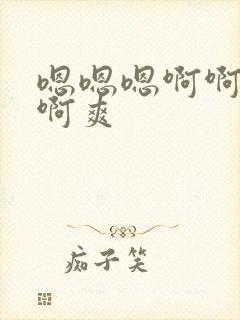 嗯嗯嗯啊啊
啊爽
痴子笑